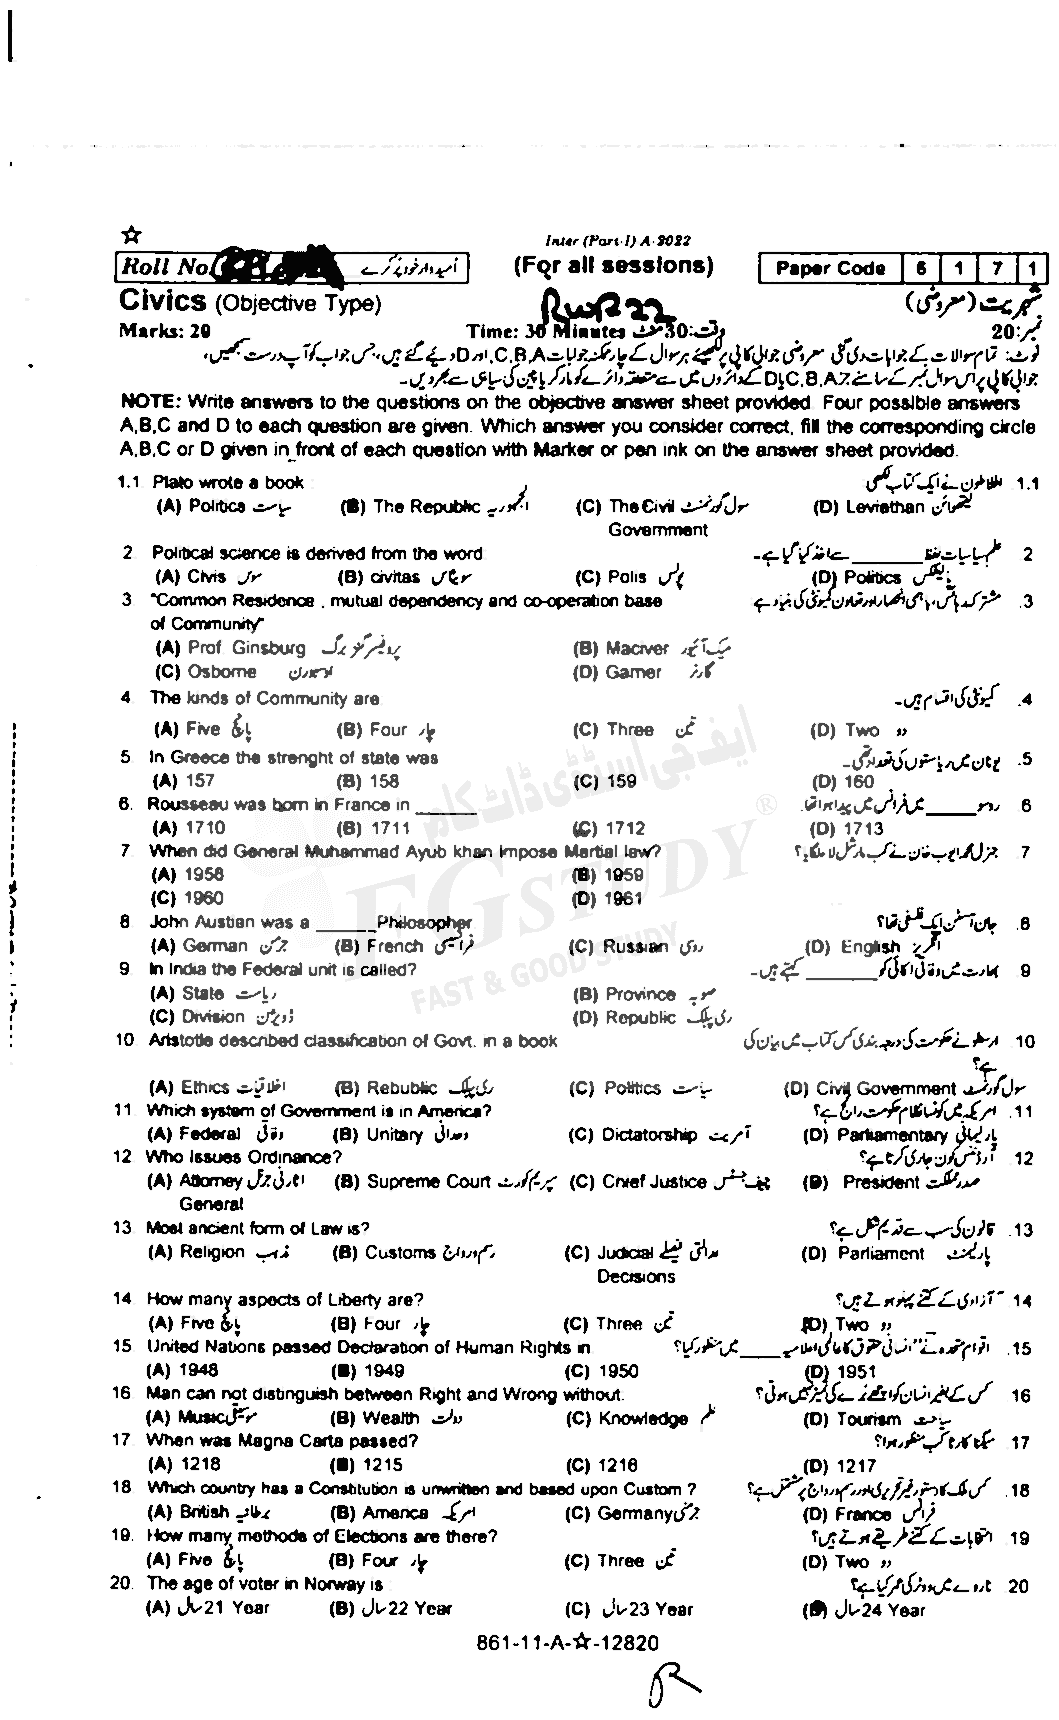 Inter (Part-I) A-2022
Roll No. امیدوار خود پُر کرے (For all sessions) Paper Code 6 1 7 1
Civics (Objective Type) RWP 22 شہریت (معروضی)
Marks: 20 Time: 30 Minutes وقت: 30 منٹ نمبر: 20
نوٹ: تمام سوالات کے جوابات دی گئی معروضی جوابی کاپی پر لکھیئے ہر سوال کے چار ممکنہ جوابات C,B,A اور D دیئے گئے ہیں، جس جواب کو آپ درست سمجھیں،
جوابی کاپی پر اس سوال نمبر کے سامنے C,B,A یا D کے دائروں میں سے متعلقہ دائرے کو مارکر یا پین کی سیاہی سے بھر دیں۔
NOTE: Write answers to the questions on the objective answer sheet provided. Four possible answers
A,B,C and D to each question are given. Which answer you consider correct, fill the corresponding circle
A,B,C or D given in front of each question with Marker or pen ink on the answer sheet provided.
1.1 Plato wrote a book افلاطون نے ایک کتاب لکھی 1.1
(A) Politics سیاست (B) The Republic الجمہوریہ (C) The Civil سول گورنمنٹ (D) Leviathan لیتھوائن
Government
2 Political science is derived from the word علم سیاسیات لفظ ______ سے اخذ کیا گیا ہے۔ 2
(A) Civis سوس (B) civitas سویٹاس (C) Polis پولس (D) Politics پالیٹکس
3 "Common Residence , mutual dependency and co-operation base مشترکہ رہائش، باہمی انحصار اور تعاون کمیونٹی کی بنیاد ہے 3.
of Community"
(A) Prof Ginsburg پروفیسر گنز برگ (B) Maciver میک آئیور
(C) Osborne اوسبورن (D) Garner گارنر
4 The kinds of Community are کمیونٹی کی اقسام ہیں۔ 4.
(A) Five پانچ (B) Four چار (C) Three تین (D) Two دو
5 In Greece the strenght of state was یونان میں ریاستوں کی تعداد تھی۔ 5.
(A) 157 (B) 158 (C) 159 (D) 160
6. Rousseau was born in France in ______ روسو ______ میں فرانس میں پیدا ہوا تھا. 6
(A) 1710 (B) 1711 (C) 1712 (D) 1713
7 When did General Muhammad Ayub khan impose Martial law? جنرل محمد ایوب خان نے کب مارشل لاء لگایا؟ 7
(A) 1958 (B) 1959
(C) 1960 (D) 1961
8 John Austian was a ______ Philosopher جان آسٹن ایک فلسفی تھا؟ 8.
(A) German جرمن (B) French فرانسیسی (C) Russian روسی (D) English انگریز
9 In India the Federal unit is called? بھارت میں وفاقی اکائی کو ______ کہتے ہیں۔ 9
(A) State ریاست (B) Province صوبہ
(C) Division ڈویژن (D) Republic ری پبلک
10 Aristotle described classification of Govt. in a book ارسطو نے حکومت کی درجہ بندی کس کتاب میں بیان کی 10
ہے؟
(A) Ethics اخلاقیات (B) Rebublic ری پبلک (C) Politics سیاست (D) Civil Government سول گورنمنٹ
11 Which system of Government is in America? امریکہ میں کونسا نظام حکومت رائج ہے؟ 11.
(A) Federal وفاقی (B) Unitary وحدانی (C) Dictatorship آمریت (D) Parliamentary پارلیمانی
12 Who Issues Ordinance? آرڈیننس کون جاری کرتا ہے؟ 12
(A) Attorney اٹارنی جنرل (B) Supreme Court سپریم کورٹ (C) Chief Justice چیف جسٹس (D) President صدر مملکت
General
13 Most ancient form of Law is? قانون کی سب سے قدیم شکل ہے؟ 13.
(A) Religion مذہب (B) Customs رسم و رواج (C) Judicial عدالتی فیصلے (D) Parliament پارلیمنٹ
Decisions
14 How many aspects of Liberty are? آزادی کے کتنے پہلو ہوتے ہیں؟ 14
(A) Five پانچ (B) Four چار (C) Three تین (D) Two دو
15 United Nations passed Declaration of Human Rights in اقوام متحدہ نے "انسانی حقوق کا عالمی اعلامیہ" ____ میں منظور کیا؟ 15.
(A) 1948 (B) 1949 (C) 1950 (D) 1951
16 Man can not distinguish between Right and Wrong without. کس کے بغیر انسان کو اچھے برے کی تمیز نہیں ہوتی؟ 16
(A) Music میوزک (B) Wealth دولت (C) Knowledge علم (D) Tourism سیاحت
17 When was Magna Carta passed? میگنا کارٹا کب منظور ہوا؟ 17
(A) 1218 (B) 1215 (C) 1216 (D) 1217
18 Which country has a Constitution is unwritten and based upon Custom ? کس ملک کا دستور غیر تحریری اور رسم و رواج پر مشتمل ہے؟ 18.
(A) British برطانیہ (B) America امریکہ (C) Germany جرمنی (D) France فرانس
19. How many methods of Elections are there? انتخابات کے کتنے طریقے ہوتے ہیں؟ 19
(A) Five پانچ (B) Four چار (C) Three تین (D) Two دو
20. The age of voter in Norway is ناروے میں ووٹر کی عمر کیا ہے؟ 20
(A) 21 Year سال (B) 22 Year سال (C) 23 Year سال (D) 24 Year سال
861-11-A-☆-12820
ایف جی اسٹڈی ڈاٹ کام
FGSTUDY ®
FAST & GOOD STUDY